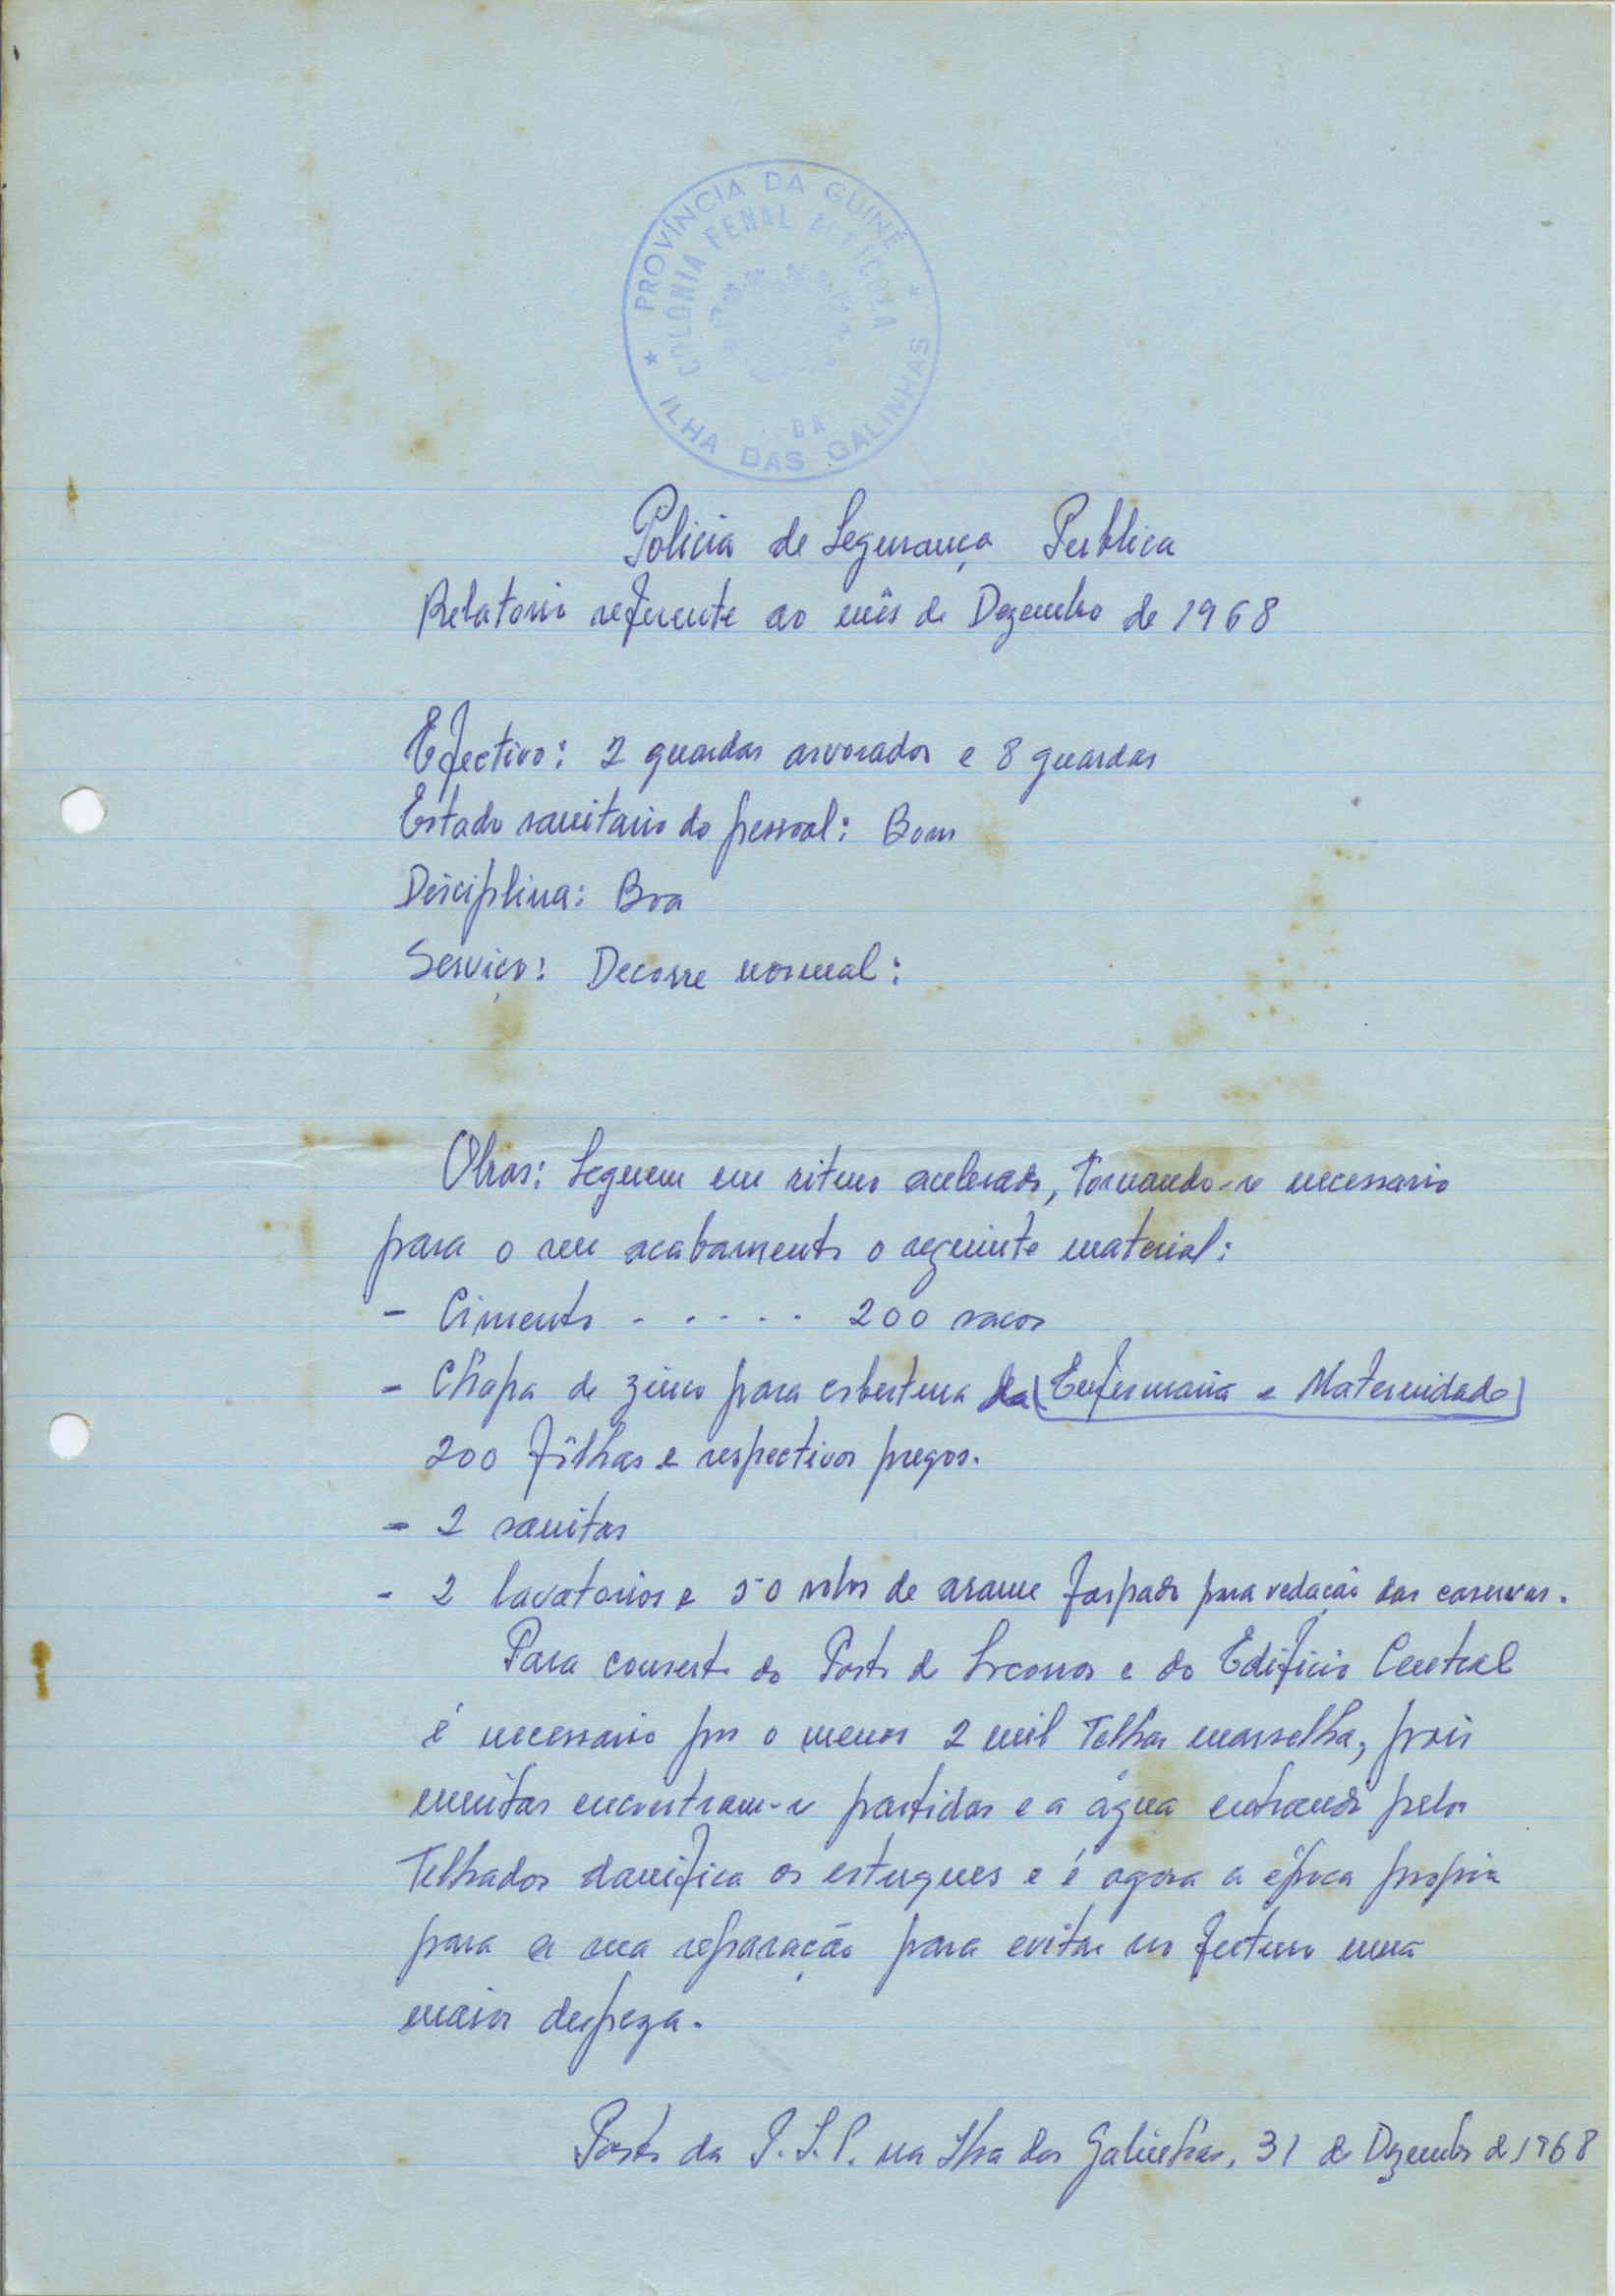 PROVÍNCIA DA GUINÉ
COLÓNIA PENAL AGRÍCOLA
DA
* ILHA DAS GALINHAS *
Policia de Segurança Publica
Relatorio referente ao mês de Dezembro de 1968
Efectivo: 2 guardas arvorados e 8 guardas
Estado sanitario do pessoal: Bom
Disciplina: Boa
Serviço: Decorre normal:
Obras: Seguem em ritmo acelerado, tornando-se necessario
para o seu acabamento o seguinte material:
- Cimento - . . . . 200 sacos
- Chapa de zinco para cobertura da (Enfermaria e Maternidade)
200 fôlhas e respectivos pregos.
- 2 sanitas
- 2 lavatorios e 50 rolos de arame farpado para vedação das casernas.
Para conserto do Posto de Socorros e do Edificio Central
é necessario por o menos 2 mil Telhas marselha, pois
muitas encontram-se partidas e a água entrando pelos
Telhados danifica os estuques e é agora a época propria
para a sua reparação para evitar no futuro uma
maior despeza.
Posto da P.S.P. na Ilha das Galinhas, 31 de Dezembro de 1968